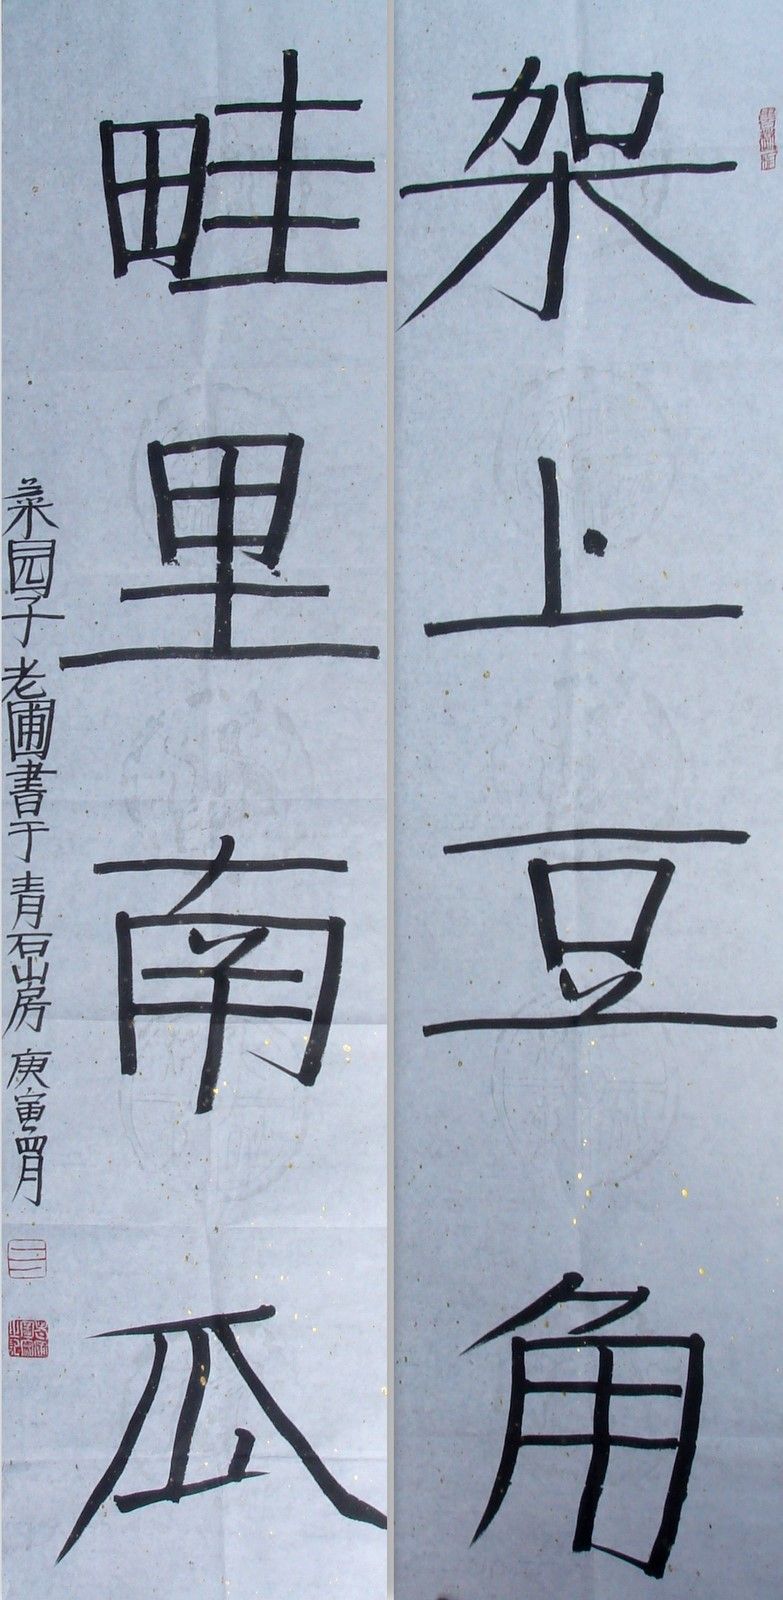 架上豆角
畦里南瓜
菜园子老圃書于青石山房 庚寅四月